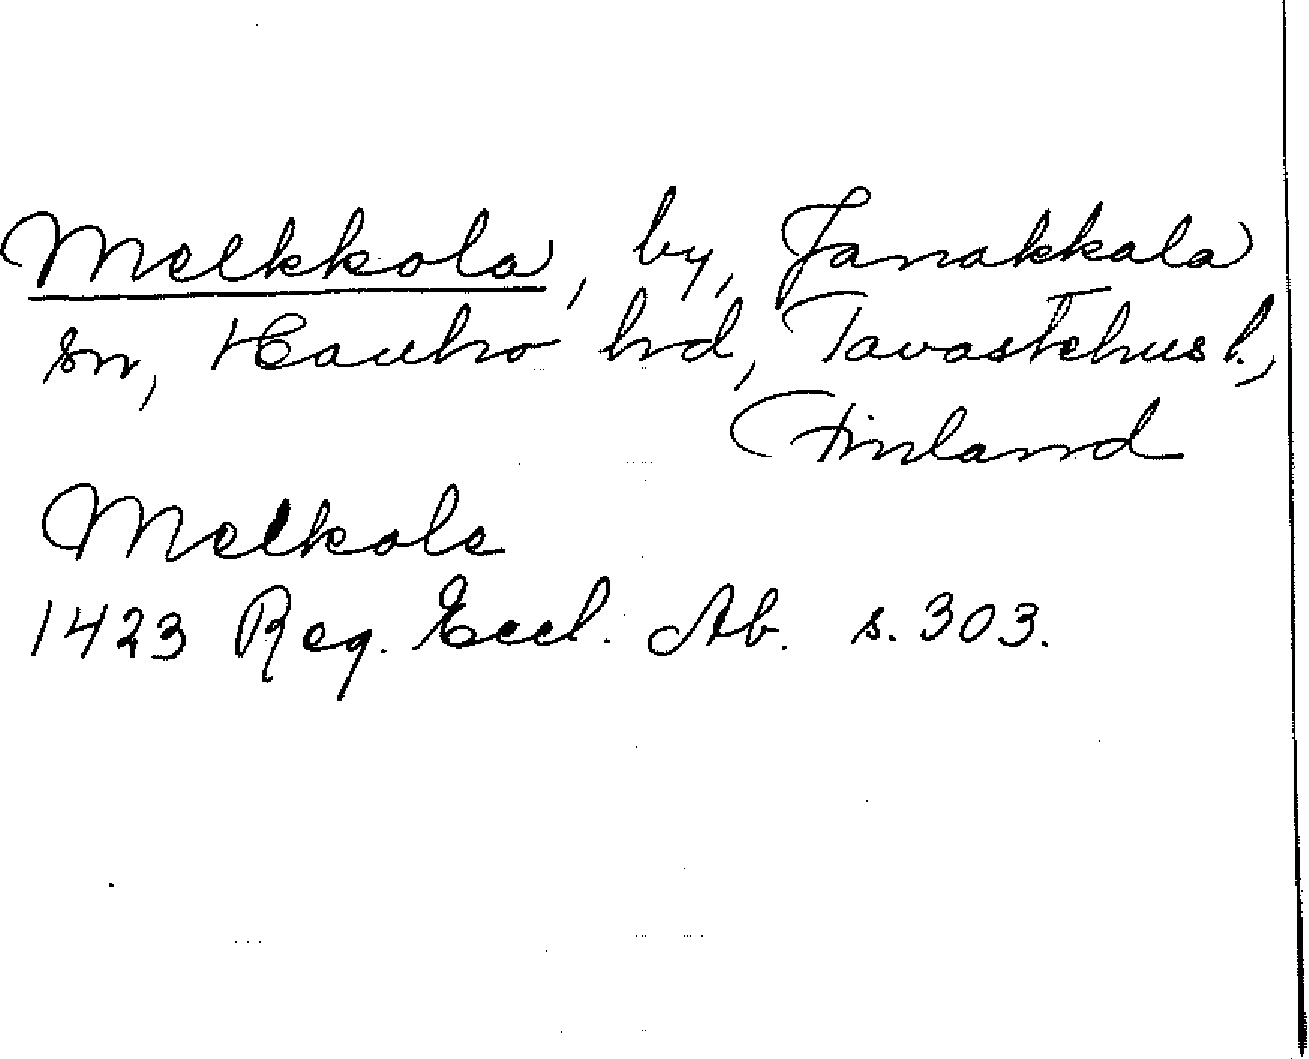 Melkkola, by, Janakkala
sn, Hauho hd, Tavastehus l.,
Finland
Melkola
1423 Reg. Eccl. Ab. s. 303.